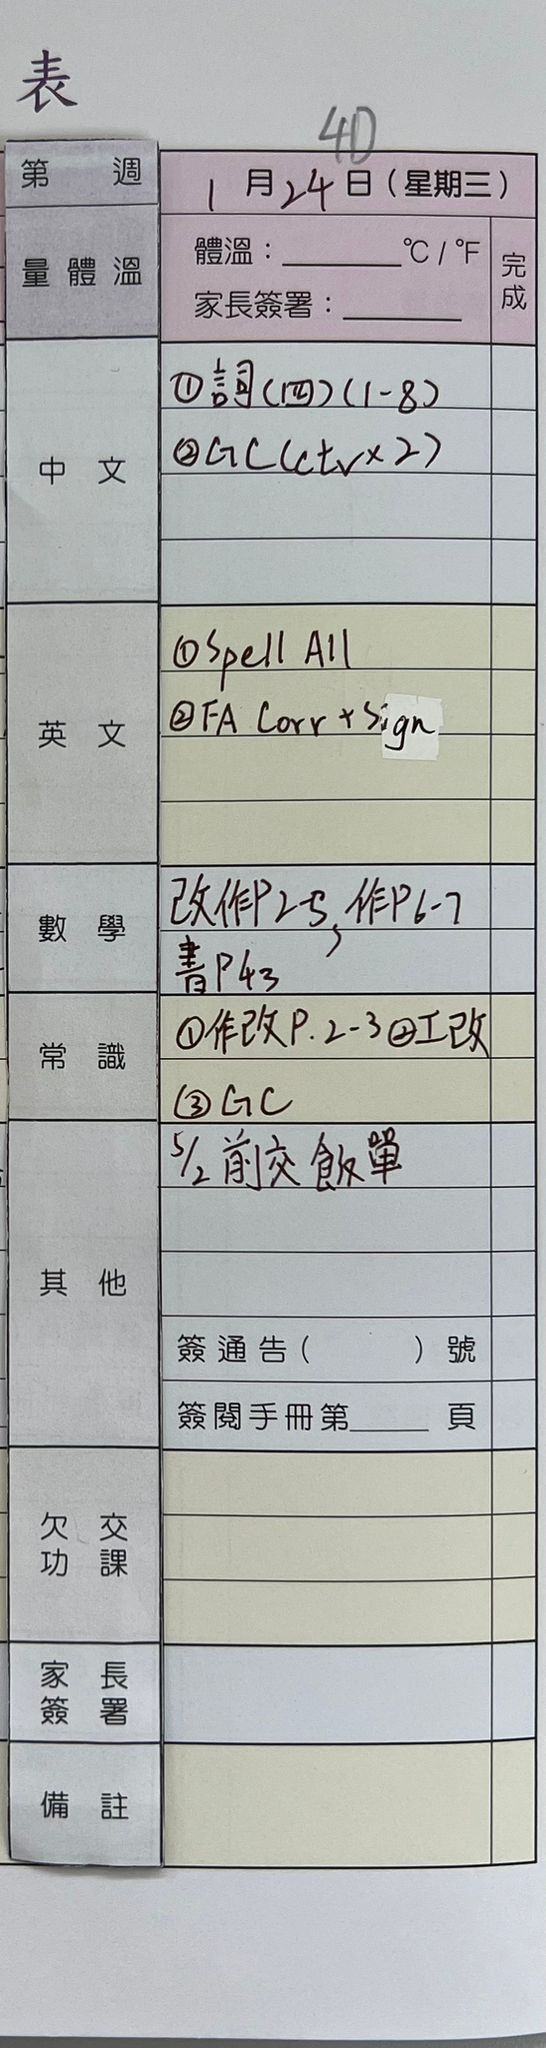 表
4D
第 週 1月24日(星期三)
量體溫 體溫：______℃/℉ 完成
家長簽署：______
中文 ①詞(四)(1-8)
②GC(ctv×2)
英文 ①Spell All
②FA Corr + Sign
數學 改作P2-5,作P6-7
書P43
常識 ①作改P.2-3②工改
③GC
其他 5/2前交飯單
簽通告( )號
簽閱手冊第____頁
欠交
功課
家長
簽署
備註